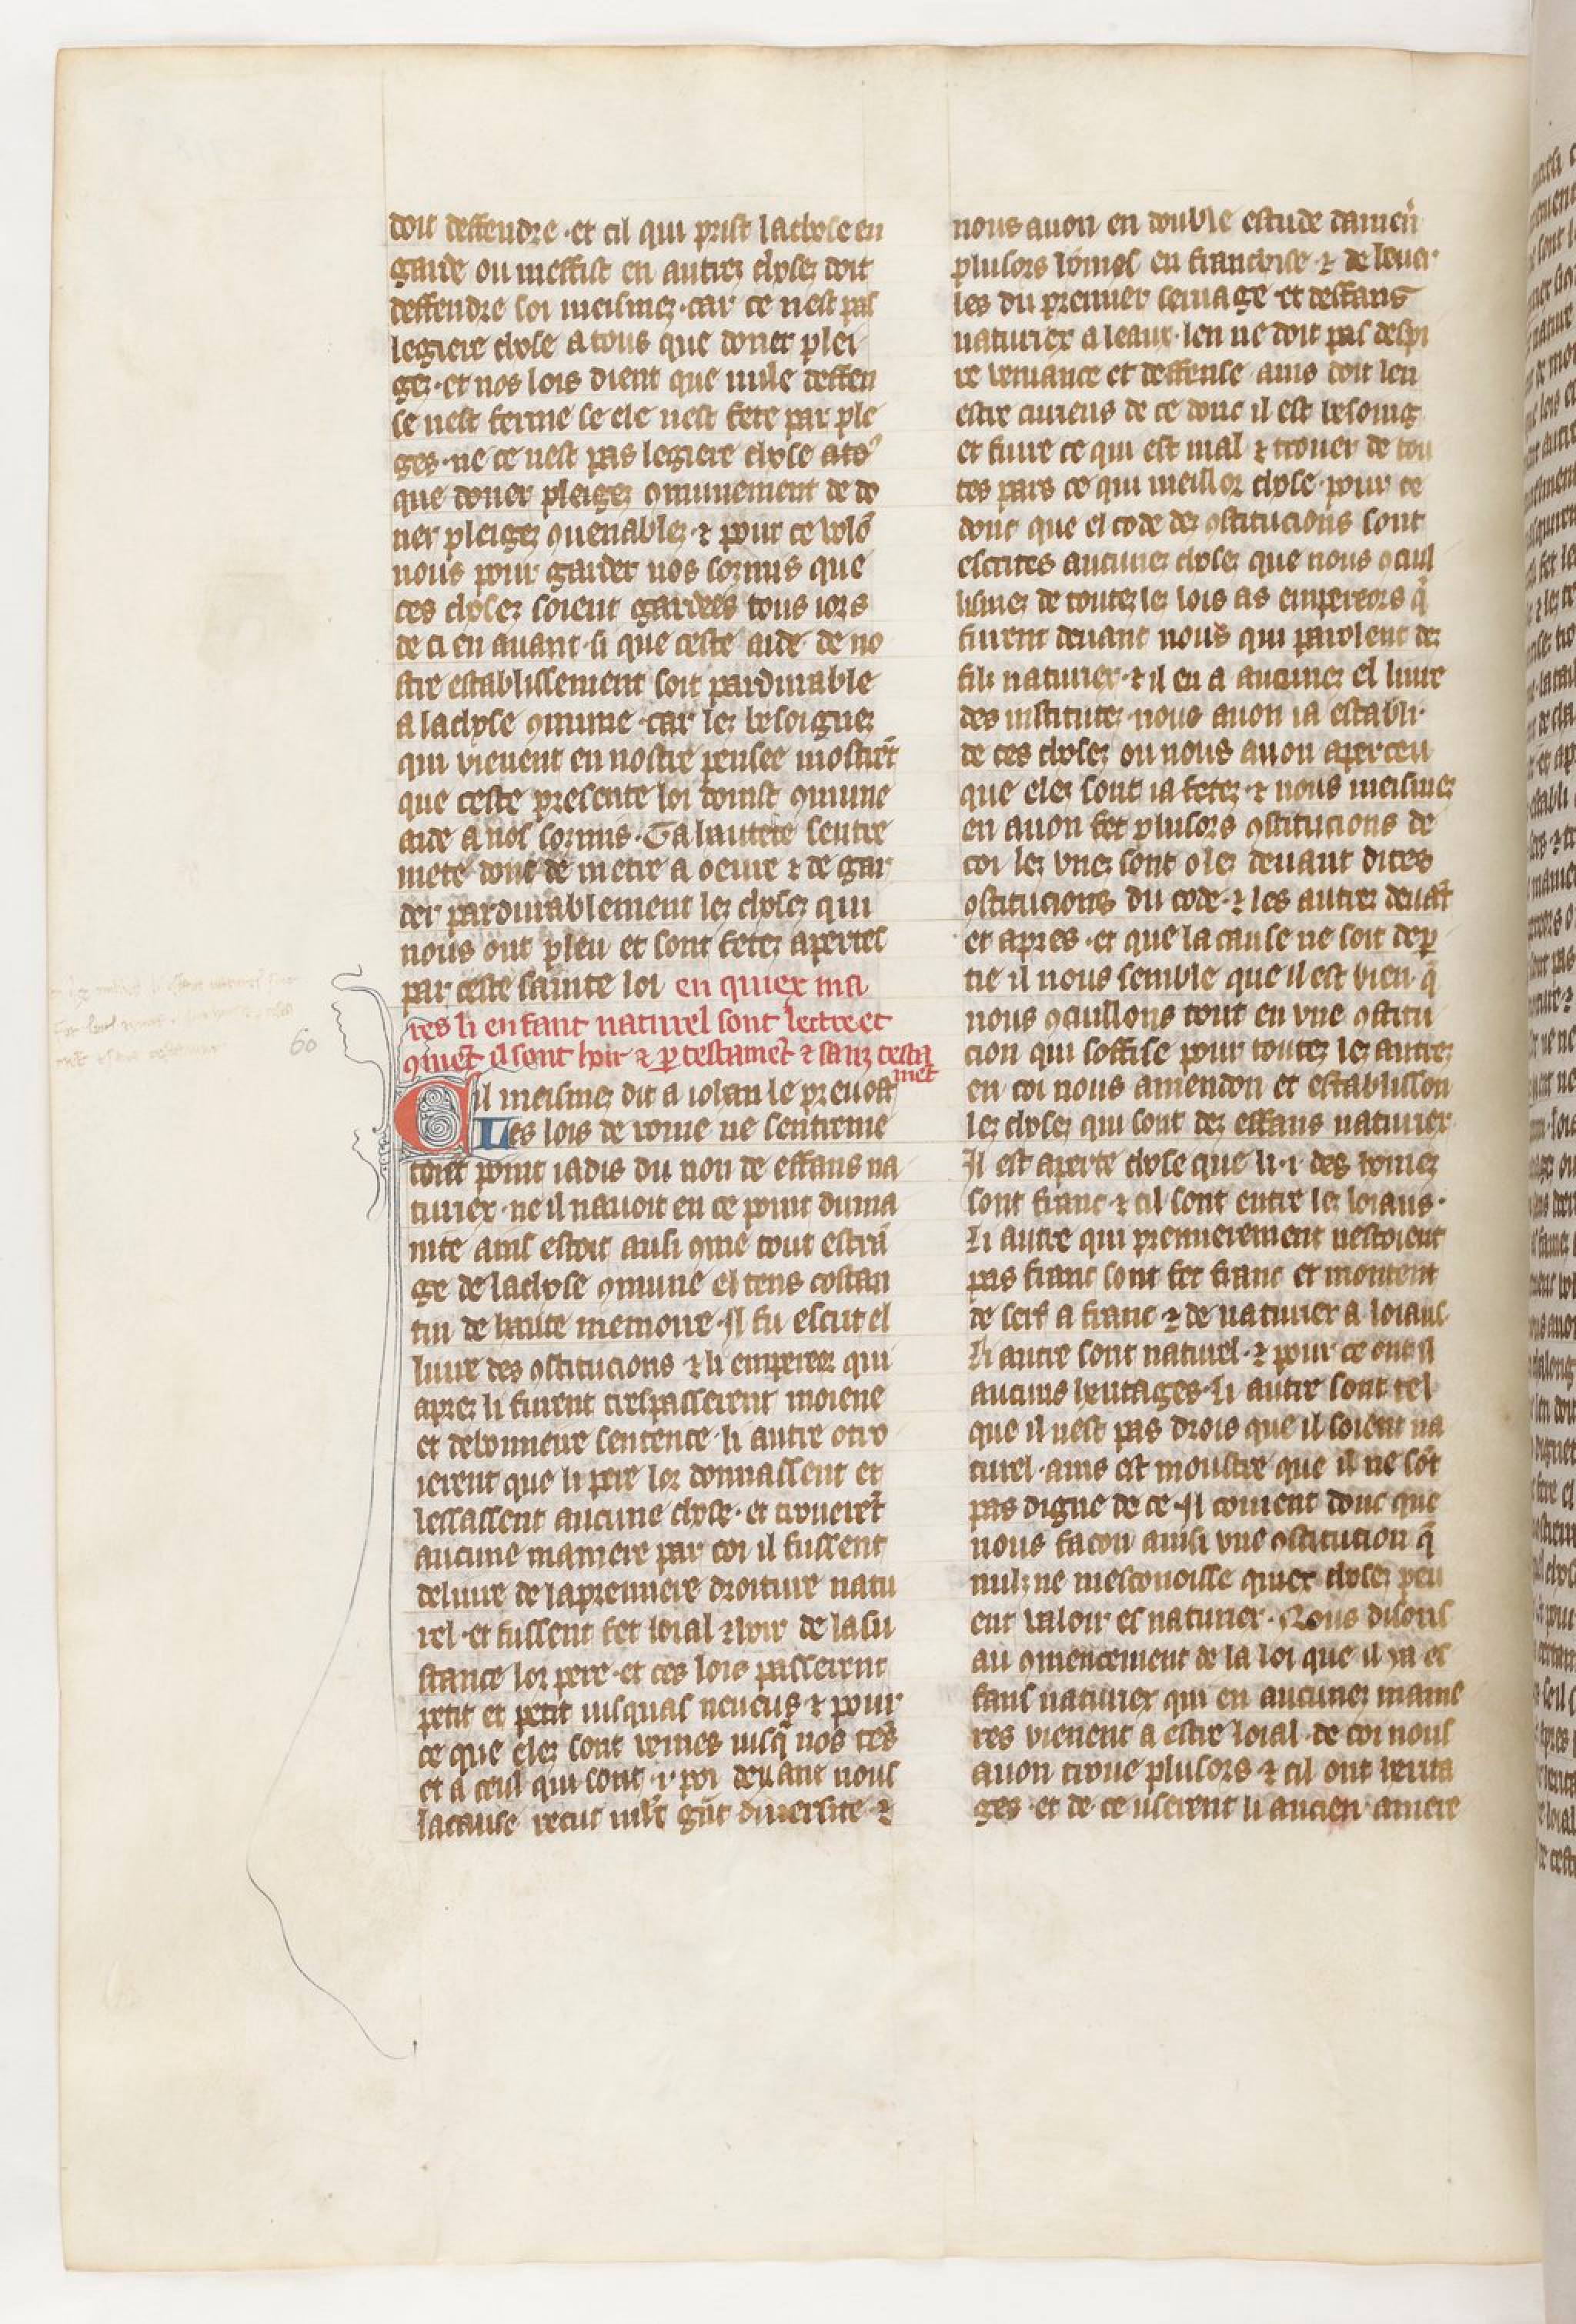 doit deffendre · et cil qui prist la chose en
garde ou meffist en autrez chosez doit
deffendre soi meismez · car ce nest pas
legiere chose a tous que doner plei
gez · et nos lois dient que nule deffen
se nest ferme se ele nest fete par ple
ges · ne ce nest pas legiere chose a to⁹
que doner pleigez ꝯmunement de do
ner pleigez ꝯuenablez · ⁊ pour ce volõ
nous pour garder nos sozmis que
ces chosez soient gardees tous iors
de ci en auant · si que ceste aide de no
stre establissement soit pardurable
a la chose ꝯmune · car lez besoignez
qui vienent en nostre pensee mostrẽt
que ceste presente loi doinst ꝯmune
aide a nos sozmis · Ta hautece sentre
mete donc de metre a oeure ⁊ de gar
der pardurablement lez chosez qui
nous ont pleu et sont fetez apertes
par ceste sainte loi en quiex ma
res li enfant naturel sont
ꝯmẽt il sont hoir ⁊ ꝑ testamẽt ⁊ sanz testa
mẽt
Cil meismez dit a iohan le preuost
Les lois de rome ne sentreme
toiẽt point iadis du non de effans na
turiex · ne il nauoit en ce point duma
nite ains estoit ausi ꝯme tout estrã
ge de la chose ꝯmune el tens costan
tin de haute memoire · Il fu escrit el
liure des ꝯstitucions ⁊ li empereor qui
aprez li furent trespasserent moiene
et debonneire sentence · li autre otro
ierent que li pere lor donnassent et
lessassent aucune chose · et trouerẽt
aucune maniere par coi il fussent
deliure de la premiere droiture natu
rel · et fussent fet loial ⁊ hoir de la su
stance lor pere · et ces lois passerent
petit et petit iusquas neueus ⁊ pour
ce que elez sont venues iusq̃ nos tẽs
et a ceus qui sont · i · poi deuant nous
la cause recut mlt̃ grãt diuersite ⁊
nous auon en double estude damen̉
plusors homes en franchise ⁊ de leuer
les du premier seruage et deffans
naturiex a leaux · len ne doit pas despi
re veniance et deffense ains doit len
estre curieus de ce donc il est besoing
et fuire ce qui est mal ⁊ trouer de tou
tes pars ce qui meillor chose · pour ce
donc que el code dez ꝯstitucions sont
escrites aucunez chosez que nous ꝯcuil
lismez de toutez lez lois as empereors q̃
furent deuant nous qui parolent dez
filz naturiex · ⁊ il en a aucunez el liure
des institutez · nous auon ia establi ·
de ces chosez ou nous auon aperceu
que elez sont ia fetez · ⁊ nous meismez
en auon fet plusors ꝯstitucions de
coi lez vnez sont o lez deuant dites
ꝯstitucions du code · ⁊ les autrez deuãt
et apres · et que la cause ne soit deꝑ
tie il nous semble que il est bien · q̃
nous ꝯcuillons tout en vne ꝯstitu
cion qui soffise pour toutez lez autrez
en coi nous amendon et establisson
lez chosez qui sont dez effans naturiex
Il est aperte chose que li · i · des homez
sont franc · ⁊ cil sont entre lez loiaus ·
Li autre qui premierement nestoient
pas franc sont fet franc et montent
de serf a franc ⁊ de naturiex a loiaus
Li autre sont naturel · ⁊ pour ce ont il
aucuns heritages · li autre sont tel
que il nest pas drois que il soient na
turel · ains est moustre que il ne sõt
pas digne de ce · Il couient donc que
nous facon ainsi vne ꝯstitucion q̃
nulz ne mesconoisse quiex chosez peu
ent valoir es naturiex · Nous disons
au ꝯmencement de la loi que il ya ef
fans naturiex qui en aucunez manie
res vienent a estre loial · de coi nous
auon troue plusors · ⁊ cil ont herita
ges · et de ce userent li ancien arriere
60